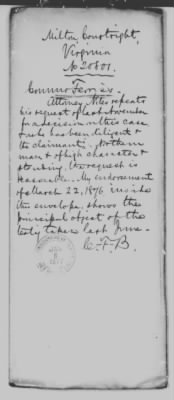 Milton Courtright,
Virginia
No 20801.
Commr Ferriss.
Attorney Niles repeats
his request of last November
for a decision in this case
of rebs has been diligent &
the claimant is a Northern
man & of high character &
standing. The request is
reasonable. My endorsement
of March 22, 1876 inside
the envelope shows the
principal object of the
testy taken last June.
C. F. B.